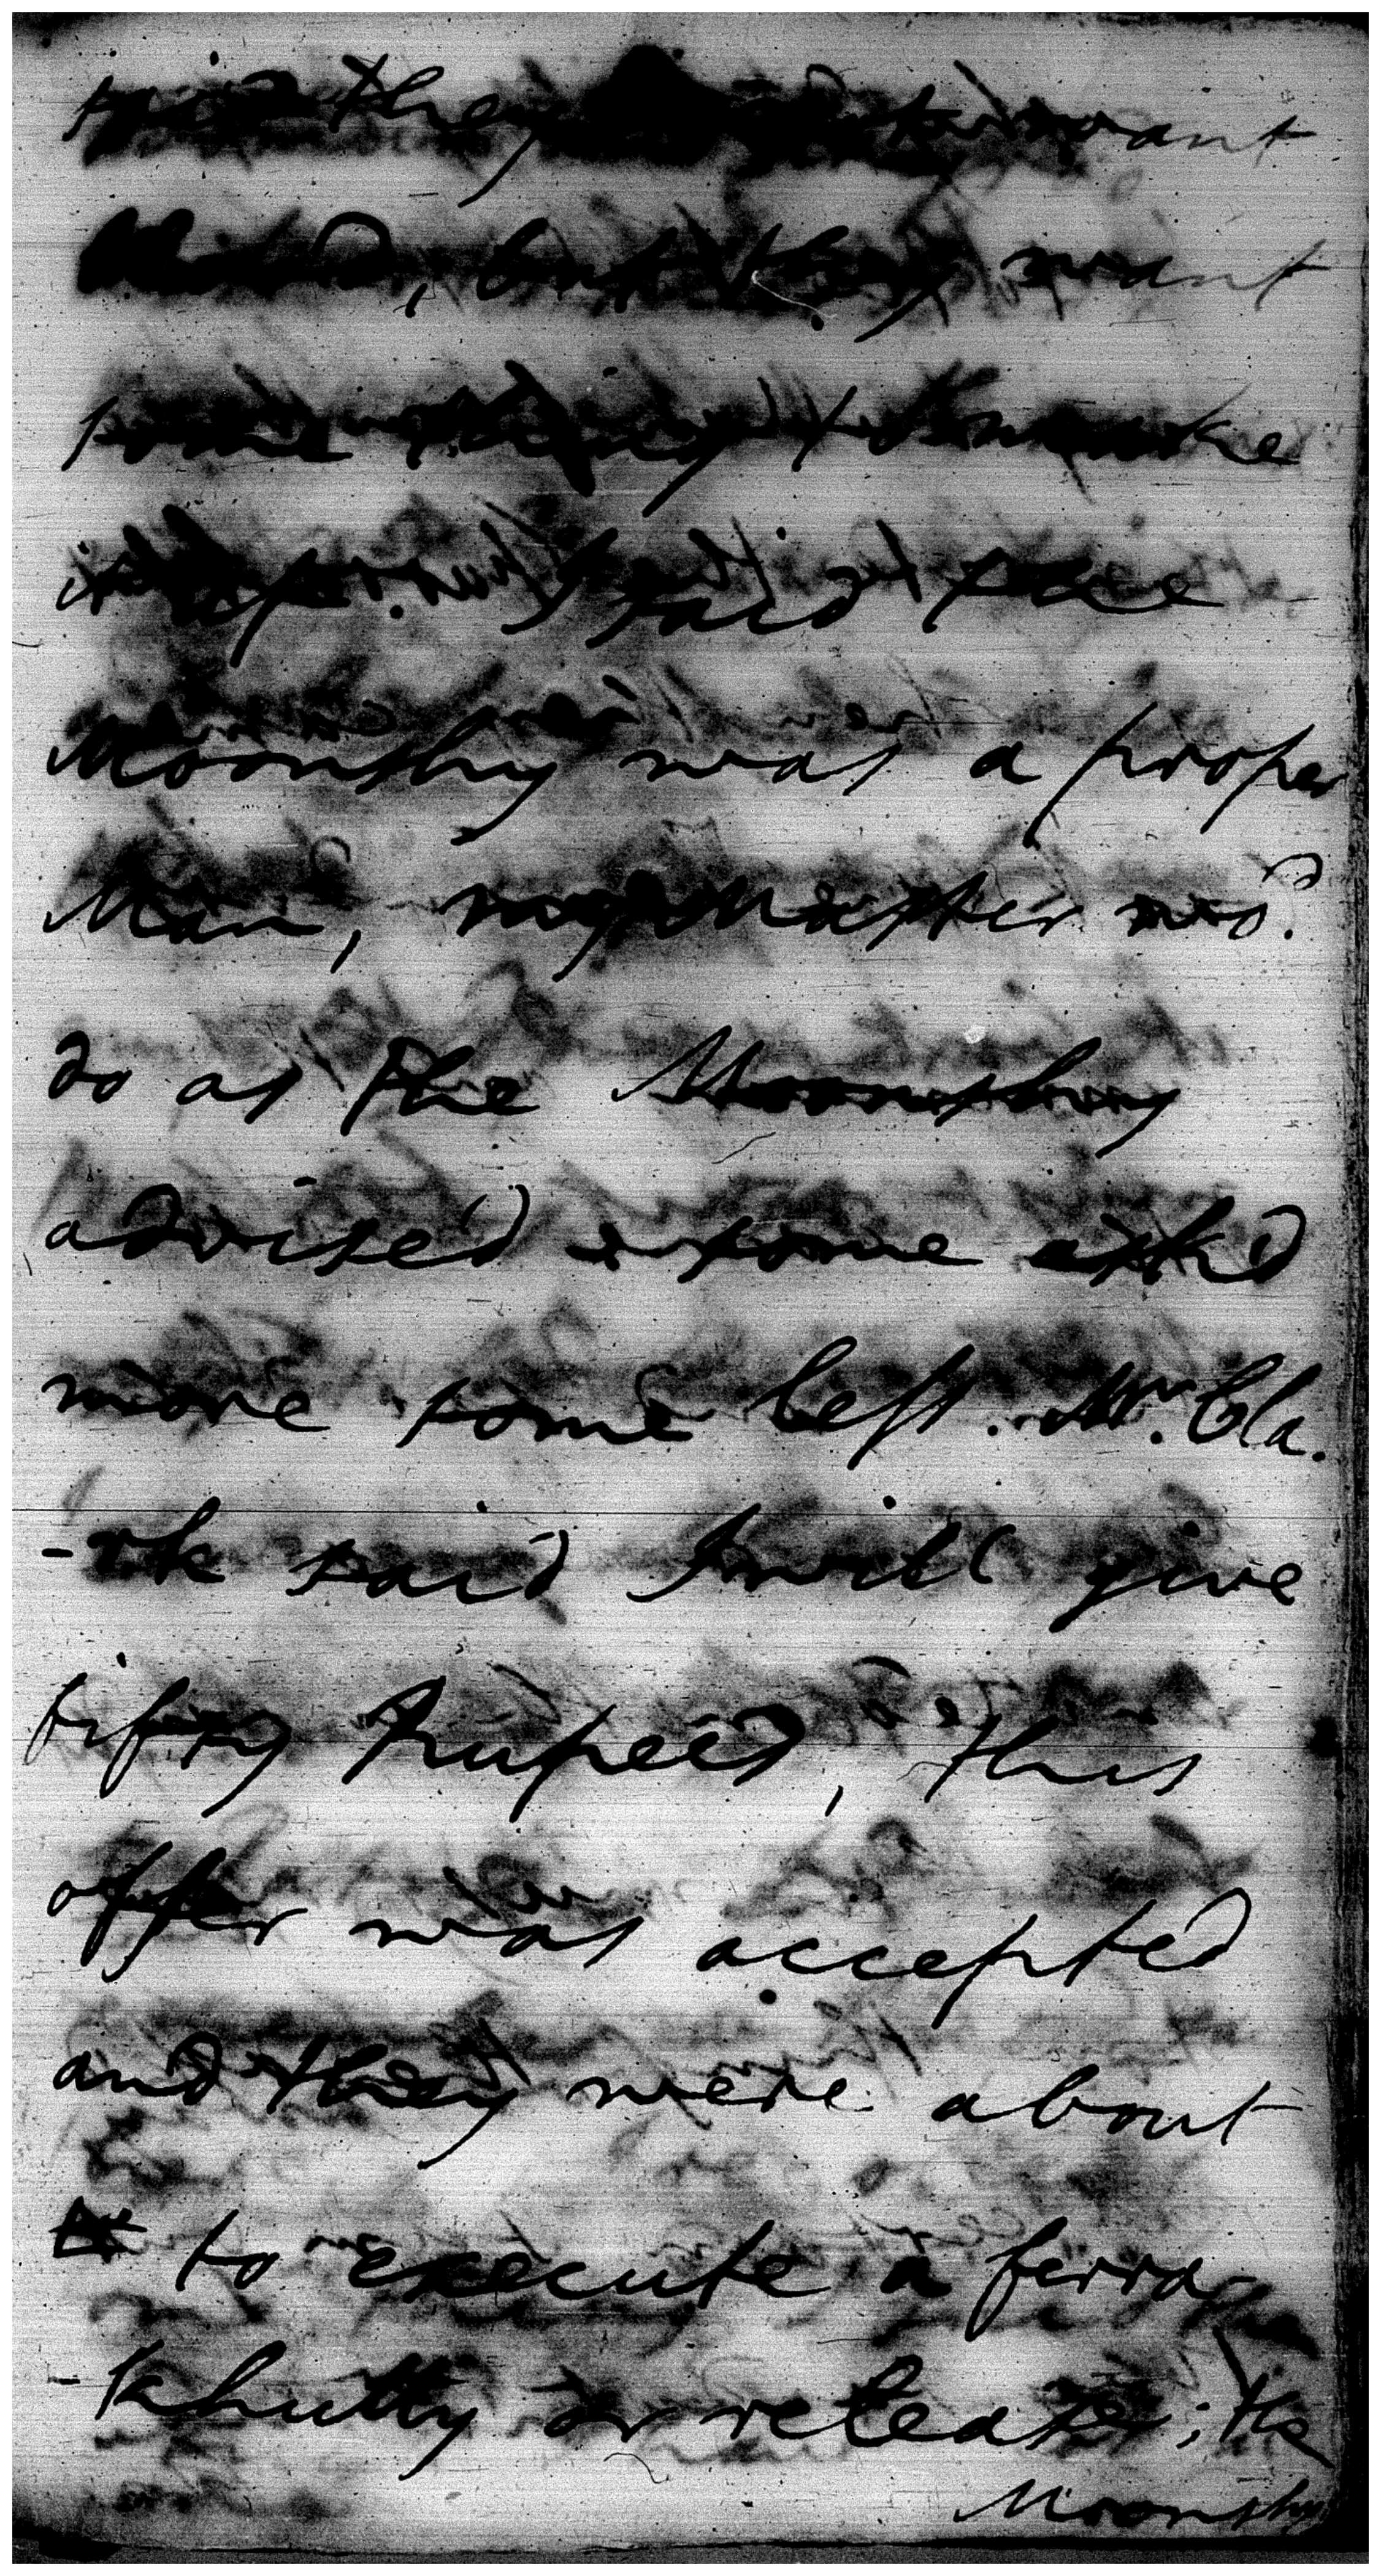 said they do not want
, but they want
some thing to make
it up. I said the
Moonshy was a proper
Man, my Master wo.d
do as the Moonshy
advised & some ask'd
more some less. Mr. Cla.
-rk said I will give
fifty Rupees, this
offer was accepted
and they were about
to execute a ferra
-khutty or release; the
Moonshy